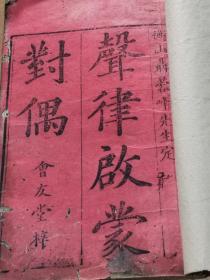 衡山聶蓉峰先生定
聲律啟蒙
對偶
會友堂梓